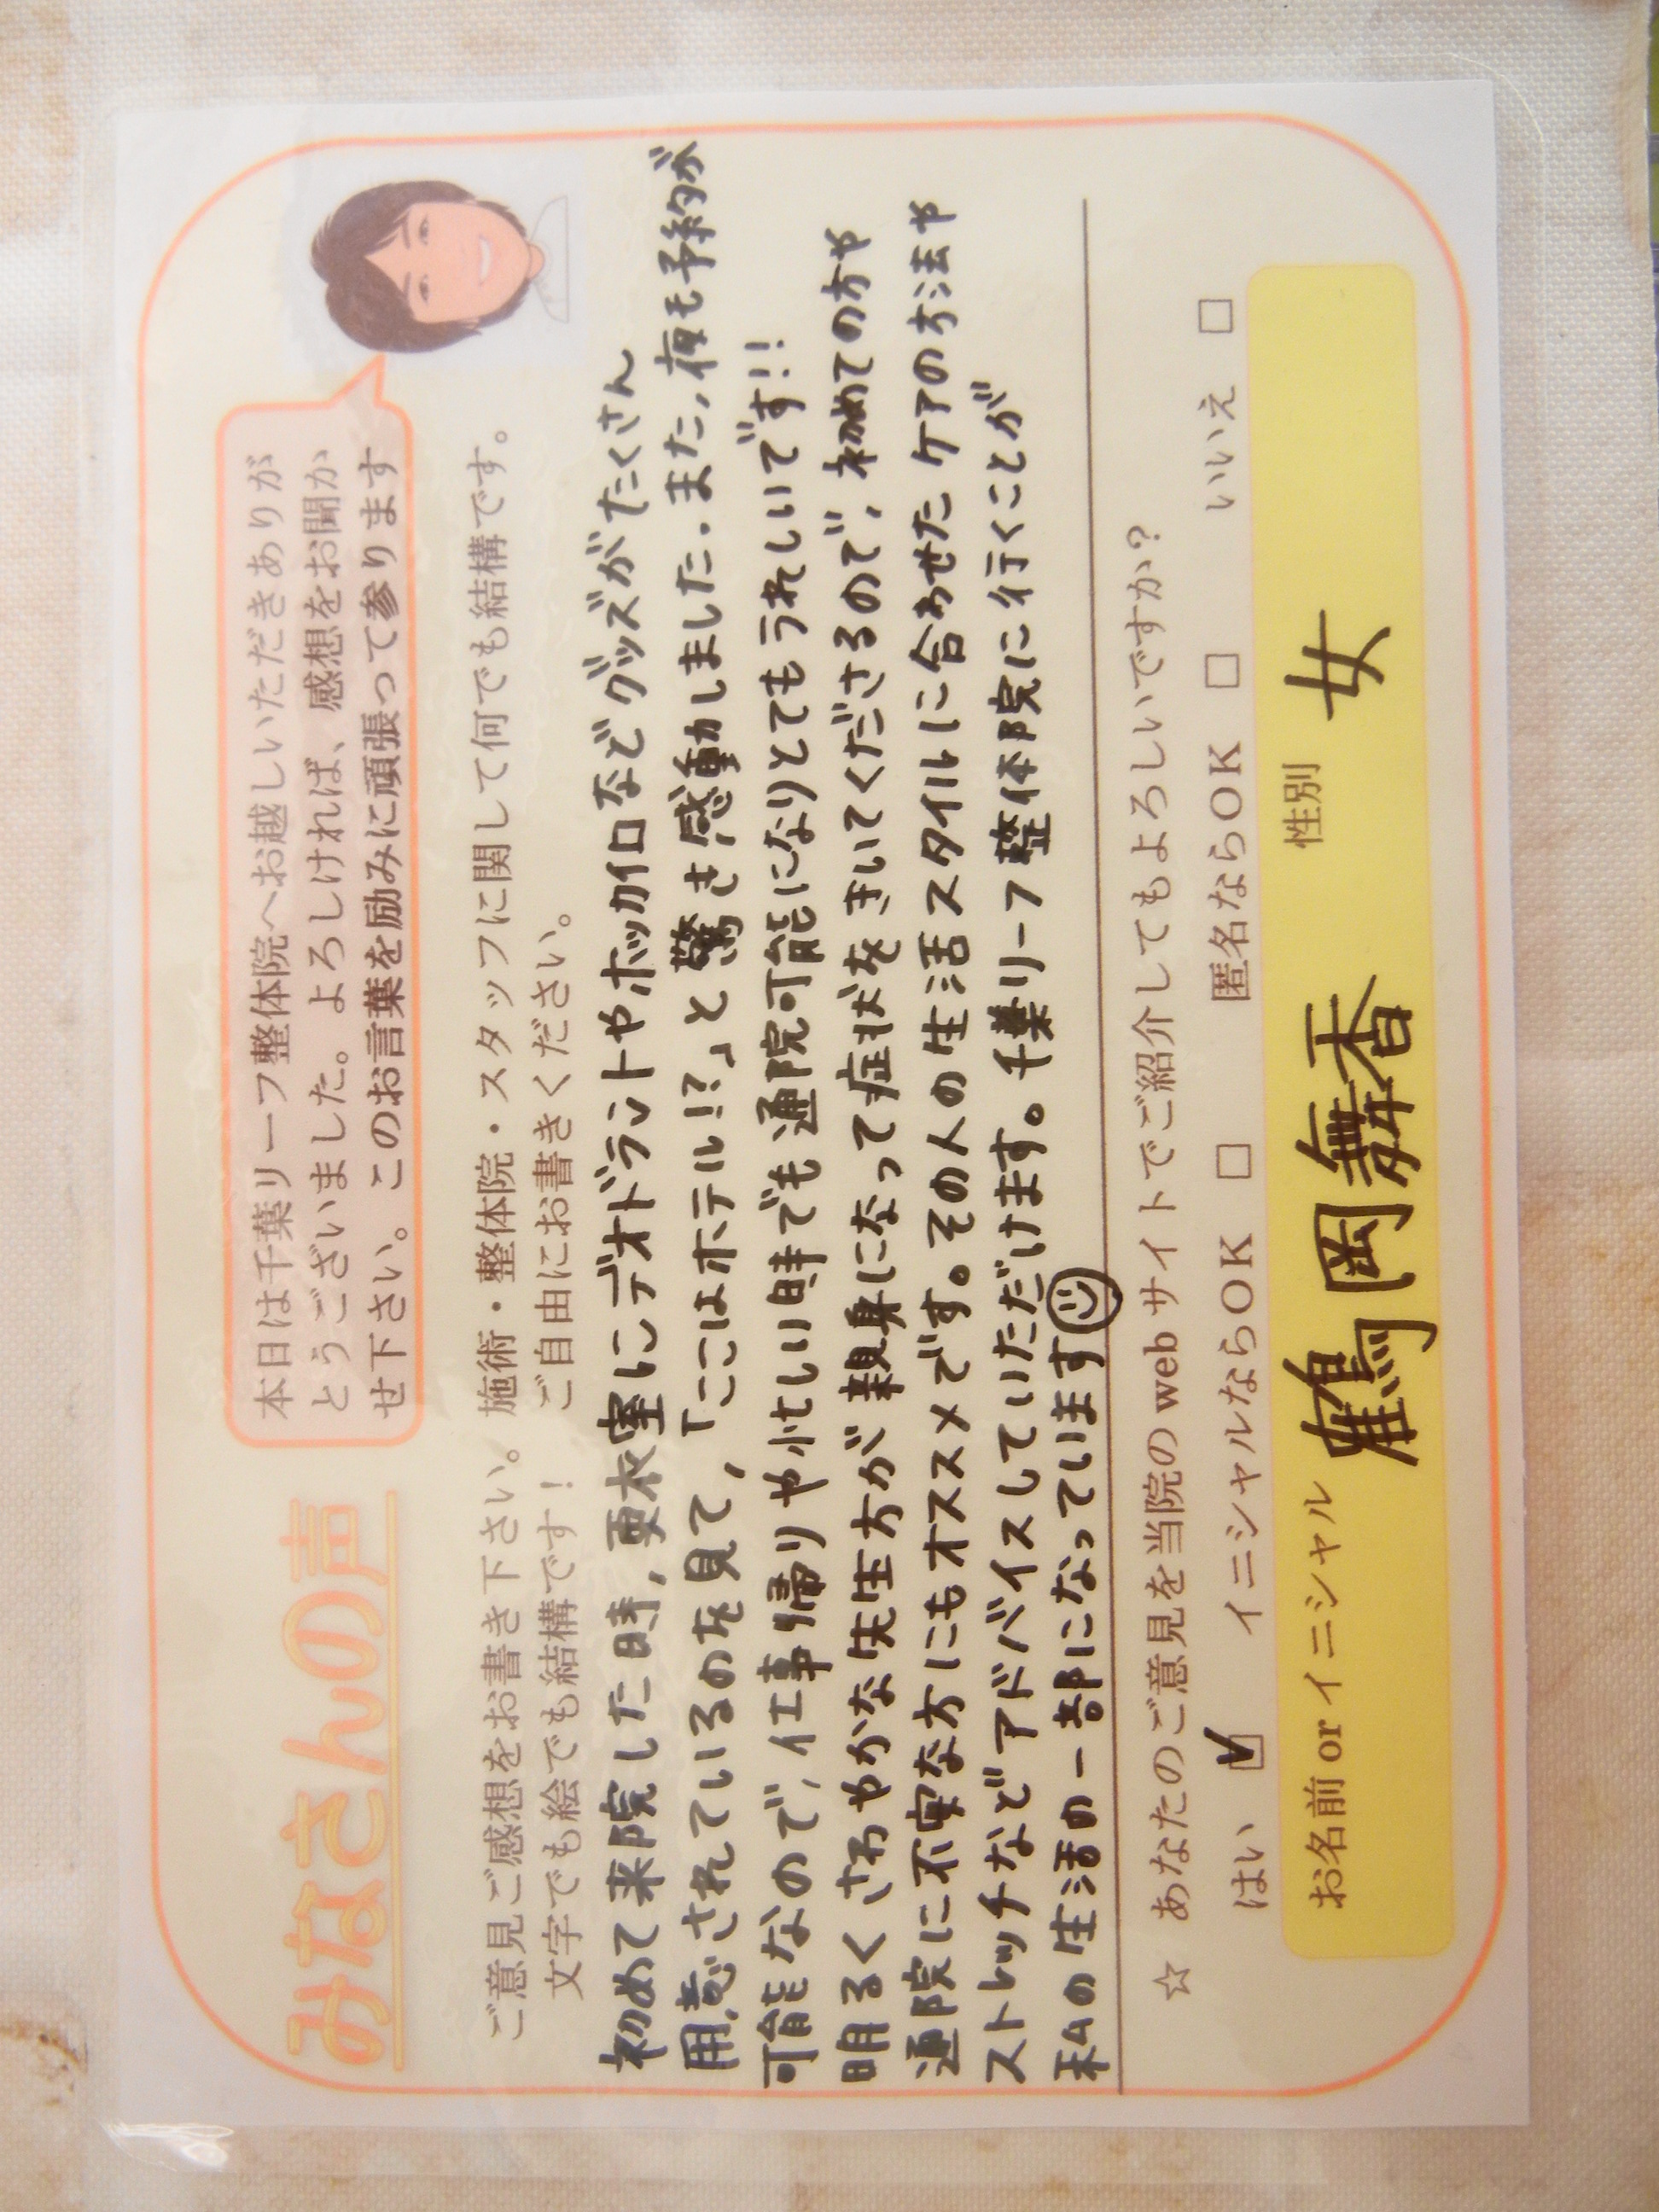 みなさんの声
本日は千葉リーフ整体院へお越しいただきありが
とうございました。よろしければ、感想をお聞か
せ下さい。このお言葉を励みに頑張って参ります
ご意見ご感想をお書き下さい。施術・整体院・スタッフに関して何でも結構です。
文字でも絵でも結構です！ご自由にお書きください。
初めて来院した時,更衣室にデオドラントやホッカイロなどグッズがたくさん
用意されているのを見て,「ここはホテル!?」と驚き感動しました.また,夜も予約が
可能なので,仕事帰りや忙しい時でも通院可能になりとてもうれしいです!!
明るくさわやかな先生方が親身になって症状をきいてくださるので,初めての方や
通院に不安な方にもオススメです。その人の生活スタイルに合わせたケアの方法や
ストレッチなどアドバイスしていただけます。千葉リーフ整体院に行くことが
私の生活の一部になっています
☆ あなたのご意見を当院の web サイトでご紹介してもよろしいですか？
はい ☑ イニシャルならＯＫ □ 匿名ならＯＫ □ いいえ □
お名前 or イニシャル 鶴岡舞香 性別 女